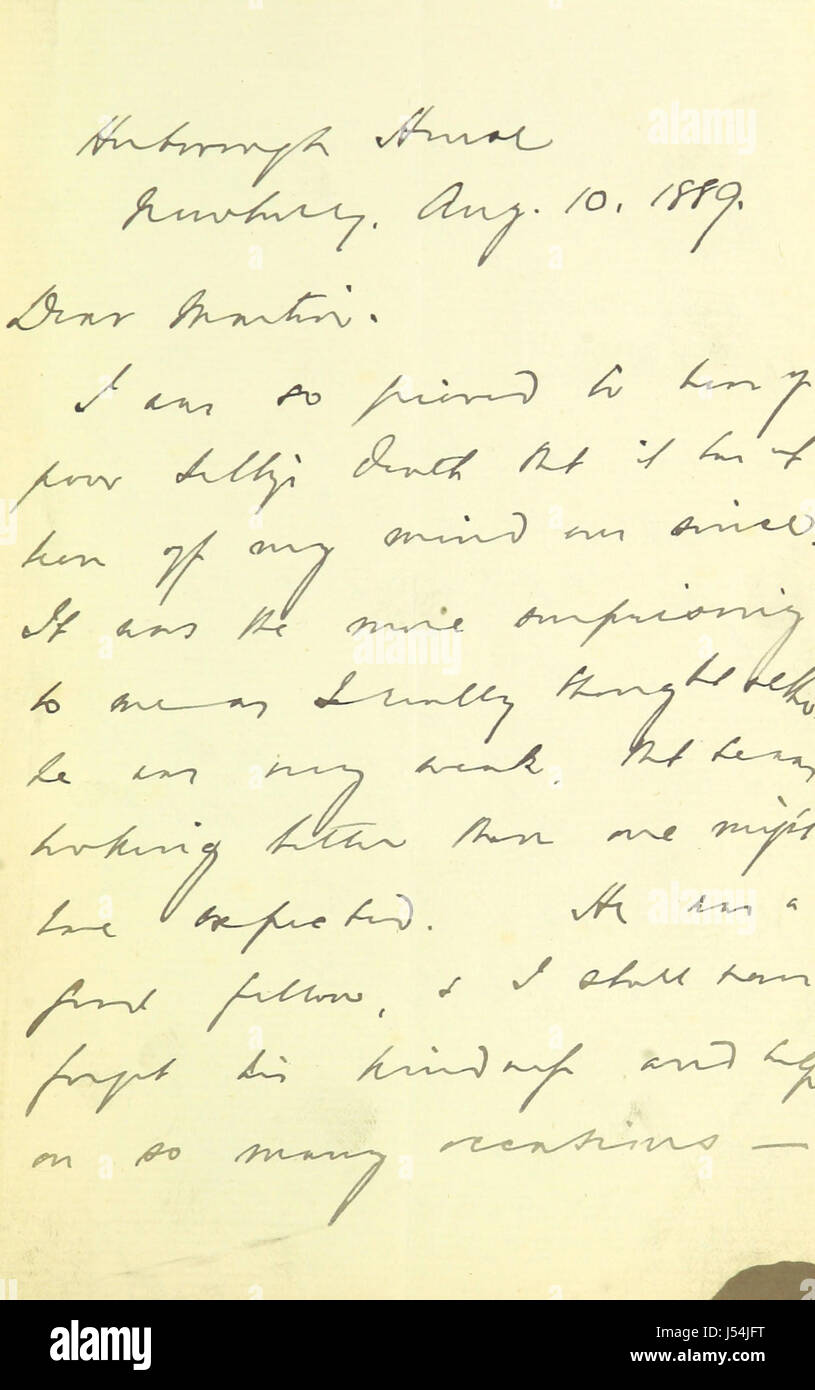 House
Newbury, Aug. 10. 1889.
Dear Martin.
I am so grieved to hear of
poor death that it has not
been off my mind ever since.
It was the more surprising
to me as I really thought altho
he was very weak, that he was
looking better than one might
have expected. He was a
good fellow, & I shall never
forget his kindness and help
on so many occasions —
alamy
alamy
alamy
alamy stock photo
J54JFT
www.alamy.com